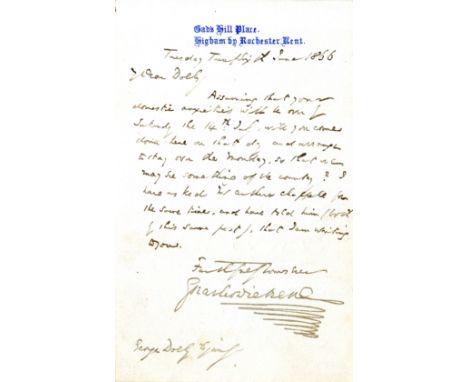 Gad's Hill Place.
Higham by Rochester Kent.
Tuesday Twelfth June 1866
My Dear Dolby
Assuming that your
domestic anxieties will be over by
Saturday the 14th Inst. will you come
down here on that day and arrange
to stay over the Monday, so that we
may see something of the country? I
have asked Mr Arthur Chappell for
the same time, and have told him
by this same post that I am writing
to you.
Faithfully Yours ever
Charles Dickens
George Dolby Esquire